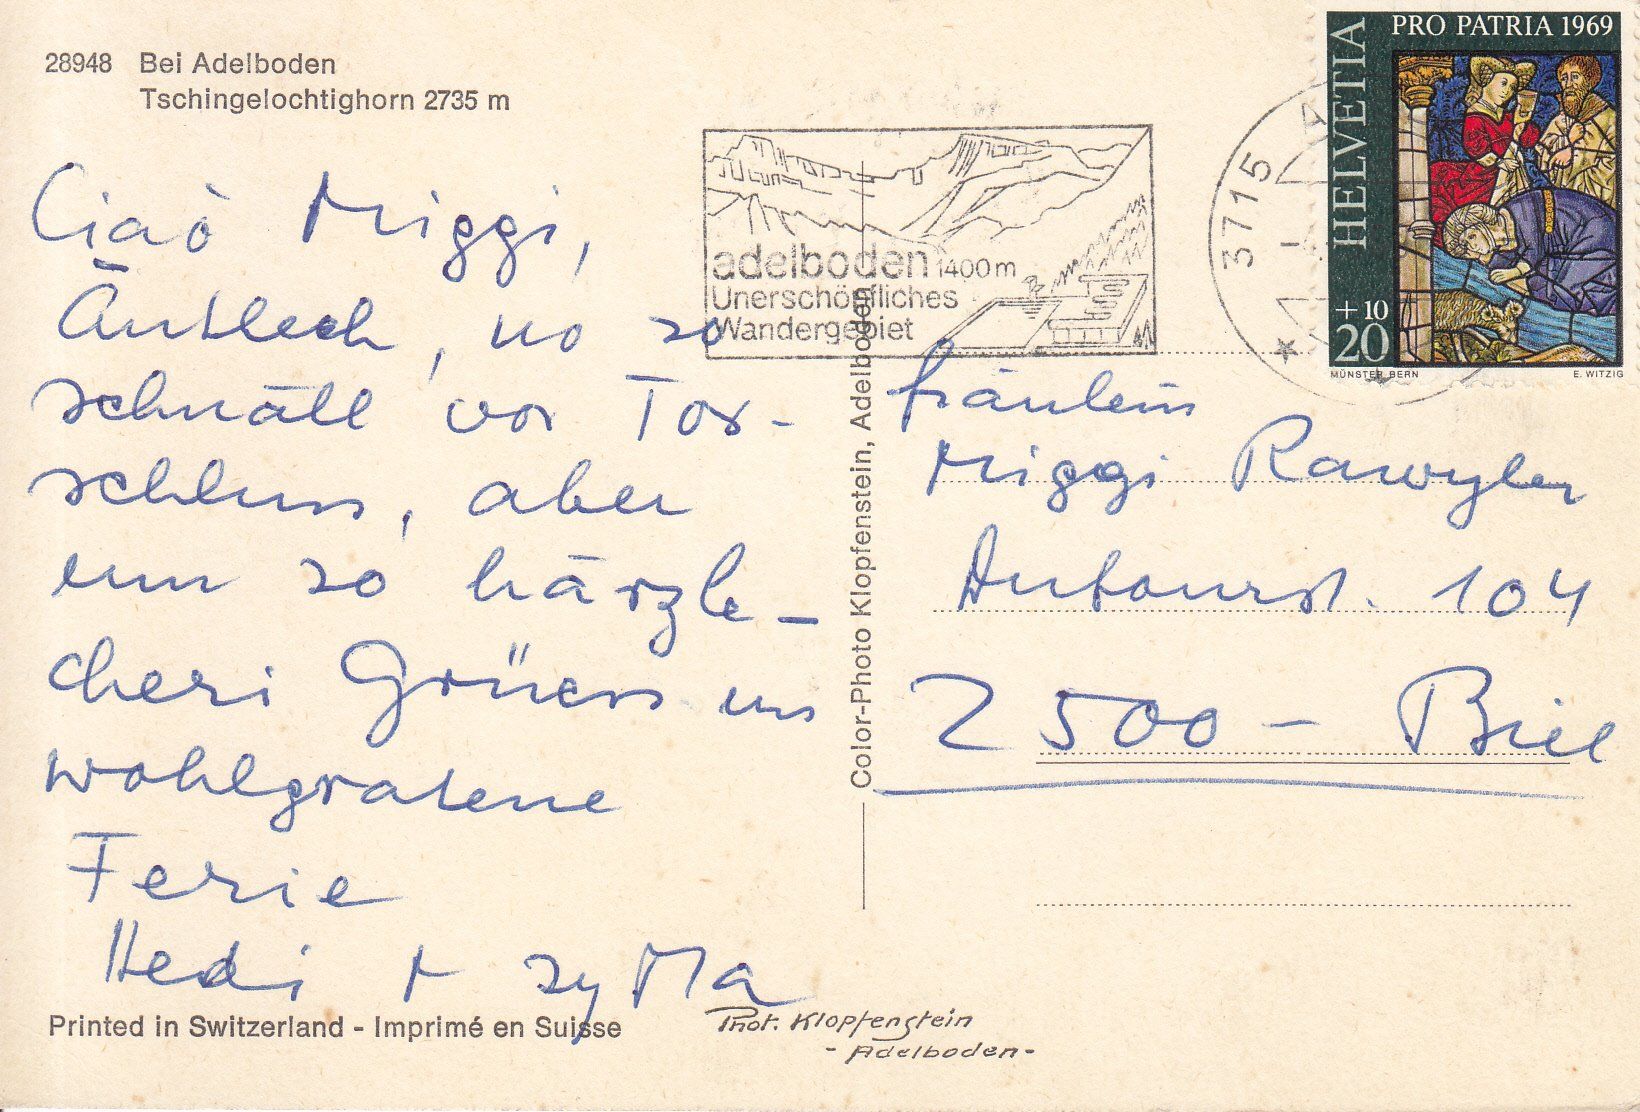 28948 Bei Adelboden
Tschingelochtighorn 2735 m
Ciaò Miggi,
Äntlech, no so
schnäll vor Tor-
schluss, aber
um so härzle-
cheri Grüess us
wohlgratene
Ferie
Hedi + sy Ma
Printed in Switzerland - Imprimé en Suisse
Phot. Klopfenstein
- Adelboden -
Color-Photo Klopfenstein, Adelboden
adelboden 1400m
Unerschöpfliches
Wandergebiet
3715
HELVETIA
PRO PATRIA 1969
+10
20
MÜNSTER BERN E. WITZIG
Fräulein
Miggi Rawyler
2500 - Biel
104